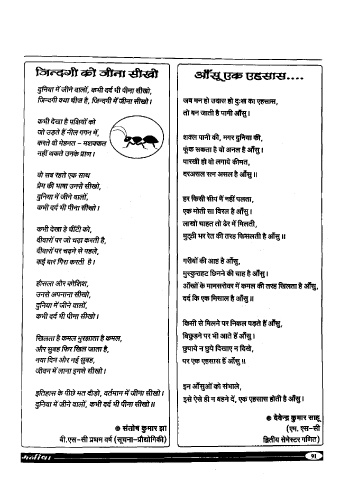 जिन्दगी को जीना सीखो
दुनिया में जीने वालों, कभी दर्द भी पीना सीखो,
जिन्दगी क्या चीज है, जिन्दगी में जीना सीखो।
कभी देखा है पक्षियों को
जो उड़ते हैं नील गगन में,
करते वो मेहनत - मशक्कत
नहीं थकते उनके प्राण।
वो सब रहते एक साथ
प्रेम की भाषा उनसे सीखो,
दुनिया में जीने वालों,
कभी दर्द भी पीना सीखो।
कभी देखा है चींटी को,
दीवारों पर जो चढ़ा करती है,
दीवारों पर चढ़ने से पहले,
कई बार गिरा करती है।
हौसला और कोशिश,
उनसे अपनाना सीखो,
दुनिया में जीने वालों,
कभी दर्द भी पीना सीखो।
खिलता है कमल मुरझाता है कमल,
और सुबह फिर खिल जाता है,
नया दिन और नई सुबह,
जीवन में लाना हमसे सीखो।
इतिहास के पीछे मत दौड़ो, वर्तमान में जीना सीखो।
दुनिया में जीने वालों, कभी दर्द भी पीना सीखो॥
संतोष कुमार झा
बी.एस-सी प्रथम वर्ष (सूचना-प्रौद्योगिकी)
आँसू एक एहसास....
जब मन हो उदास हो दुःख का एहसास,
तो बन जाती है पानी आँसू।
शक्त पानी की, मगर दुनिया की,
फूंक सकता है वो अनल है आँसू।
पारखी हो वो लगाये कीमत,
दरअसल रत्न असल है आँसू॥
हर किसी सीप में नहीं पलता,
एक मोती सा विरल है आँसू।
लाखो चाहत तो ढेर में मिलती,
मुट्ठी भर रेत की तरह फिसलती है आँसू॥
गरीबों की आह है आँसू,
मुस्कुराहट छिनने की चाह है आँसू।
आँखों के मानसरोवर में कमल की तरह खिलता है आँसू,
दर्द कि एक मिसाल है आँसू॥
किसी से मिलने पर निकल पड़ते हैं आँसू,
बिछुड़ने पर भी आते हैं आँसू।
छुपाये न छुपे दिखाए न दिखे,
पर एक एहसास हैं आँसू॥
इन आँसुओं को संभाले,
इसे ऐसे ही न बहने दें, एक एहसास होती है आँसू।
देवेन्द्र कुमार साहू
(एम. एस-सी
द्वितीय सेमेस्टर गणित)
91